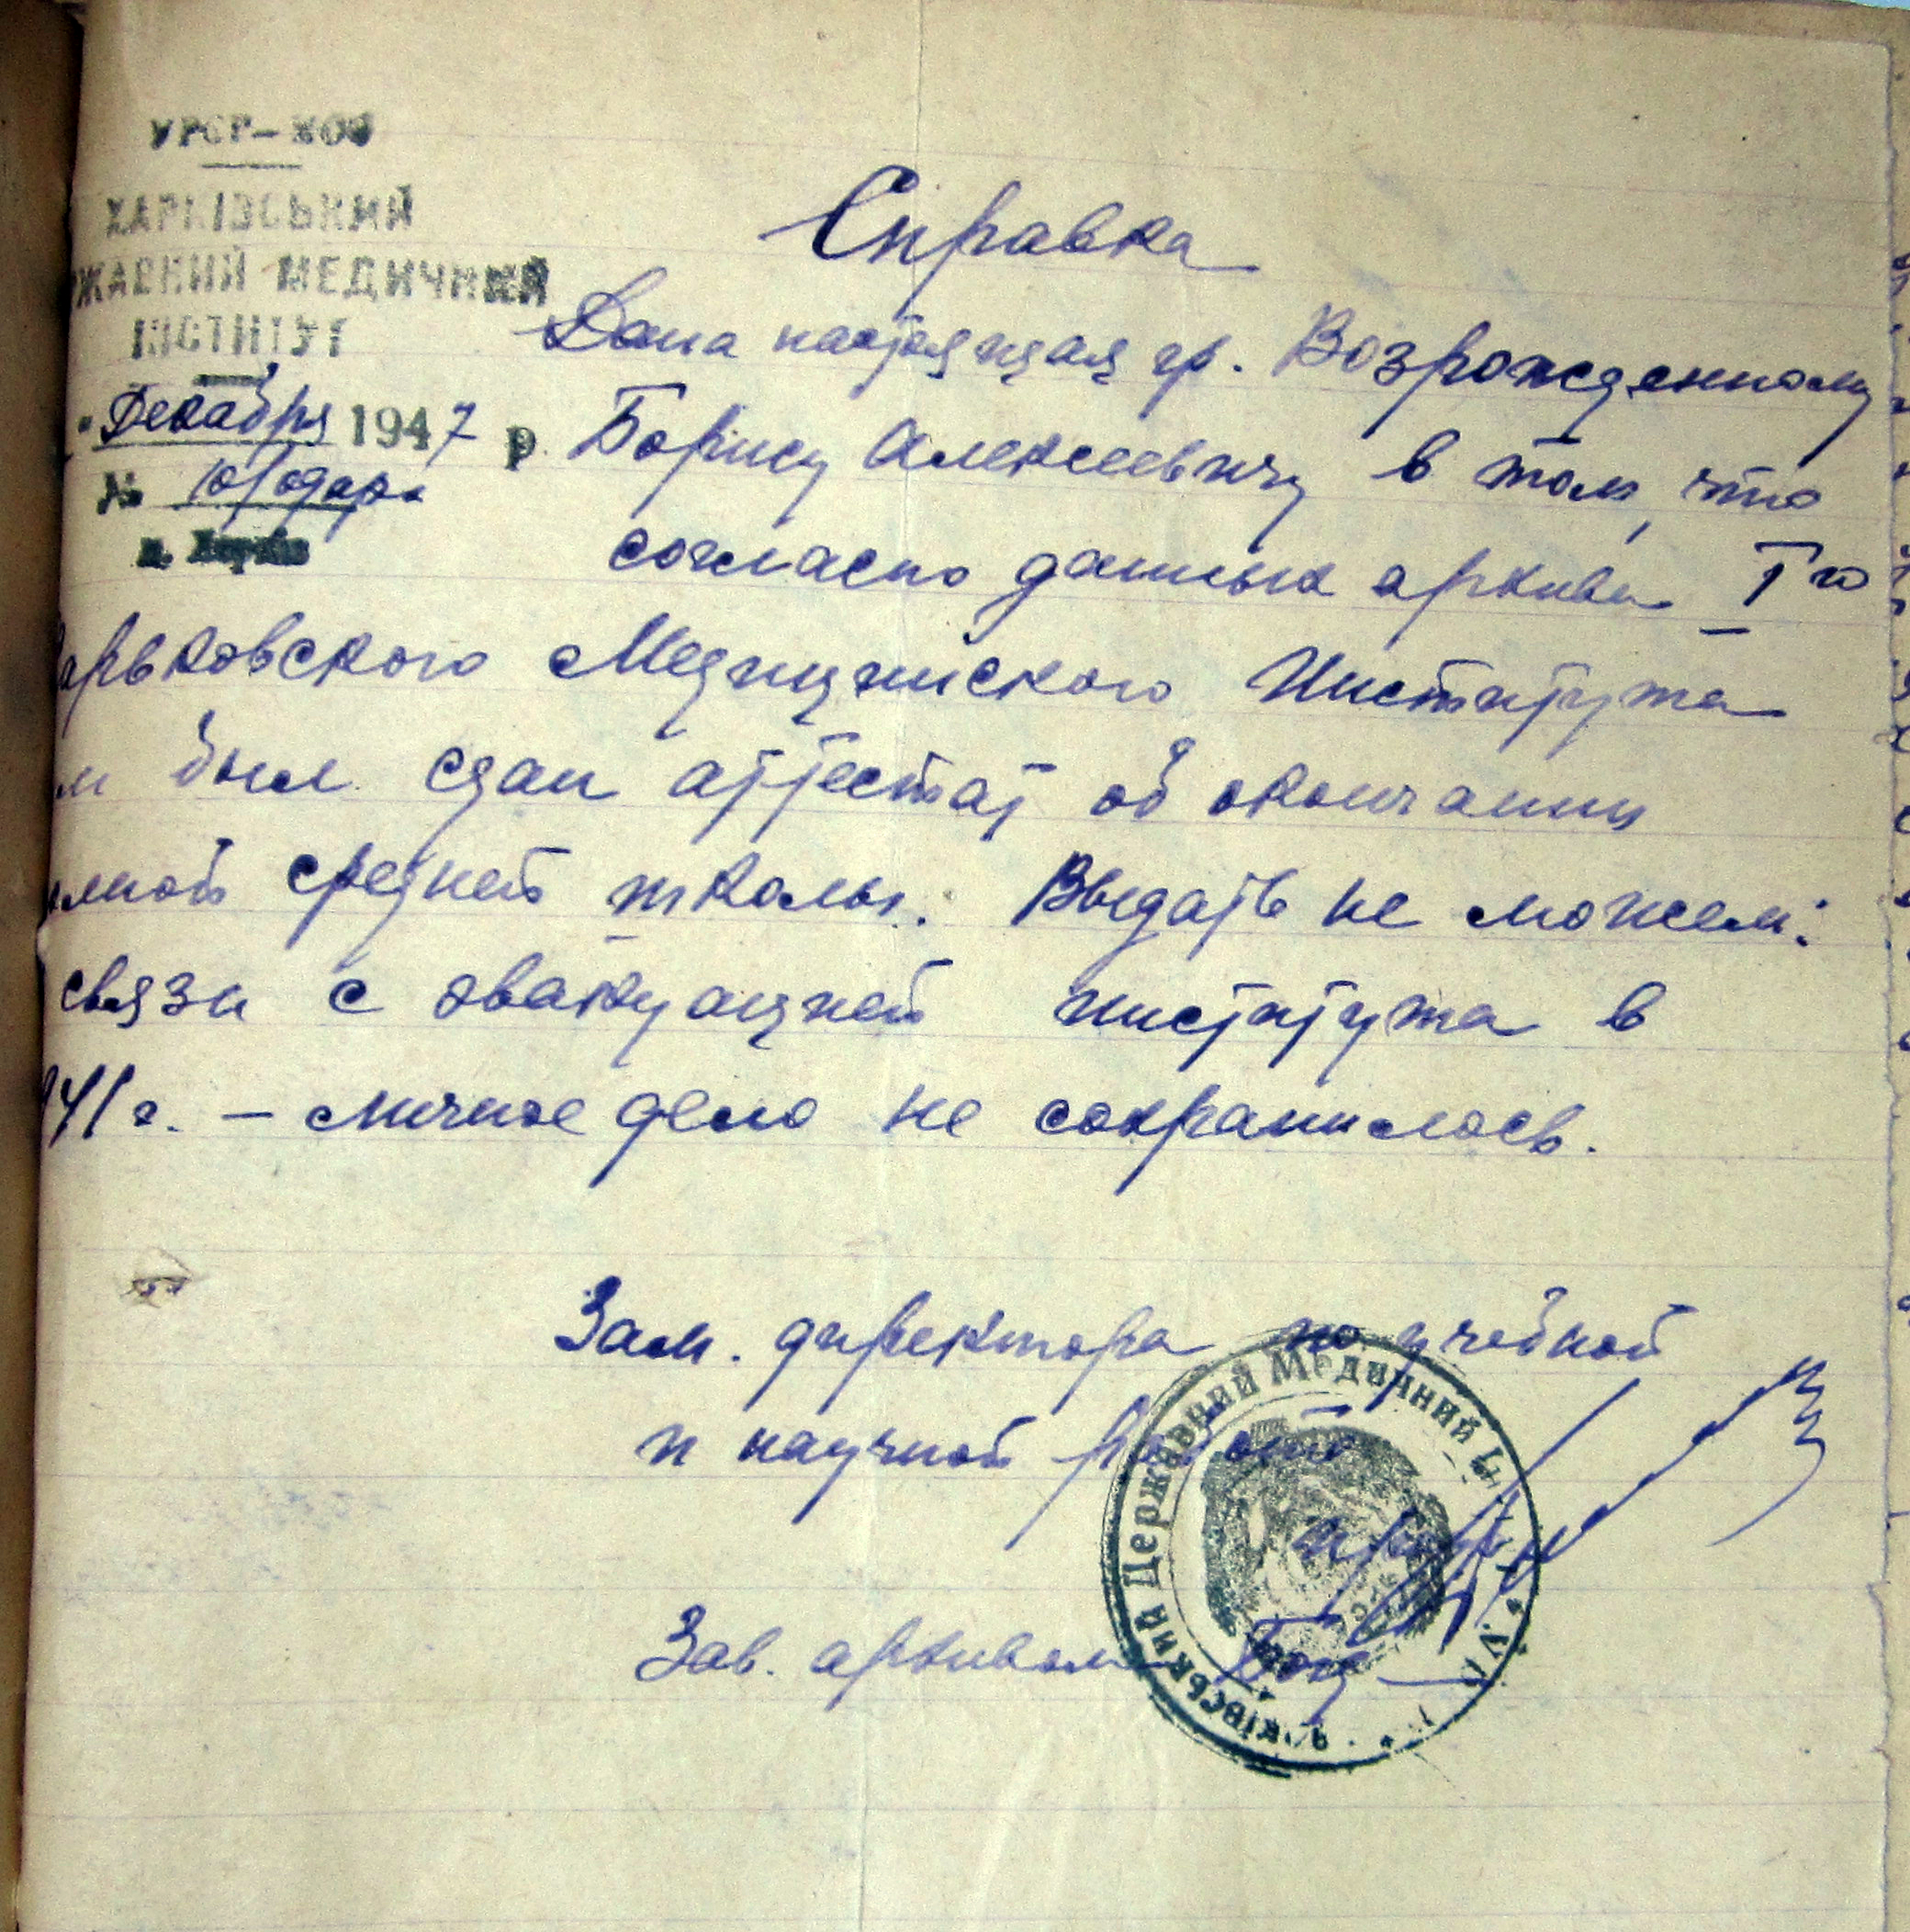 УРСР – НОЗ
ХАРКІВСЬКИЙ
РЖАВНИЙ МЕДИЧНИЙ
ІНСТИТУТ
" Декабря 1947 р.
№
м. Харків
Справка
Дана настоящая гр. Возрожденному
Борису Алексеевичу в том, что
согласно данных архива I го
арьковского Медицинского Института
м был сдан аттестат об окончании
лной средней школы. Выдать не можем:
связи с эвакуацией института в
941 г. – личное дело не сохранилось.
Зам. директора по учебной
и научной работе
Зав. архивом
ківський Державний Медичний